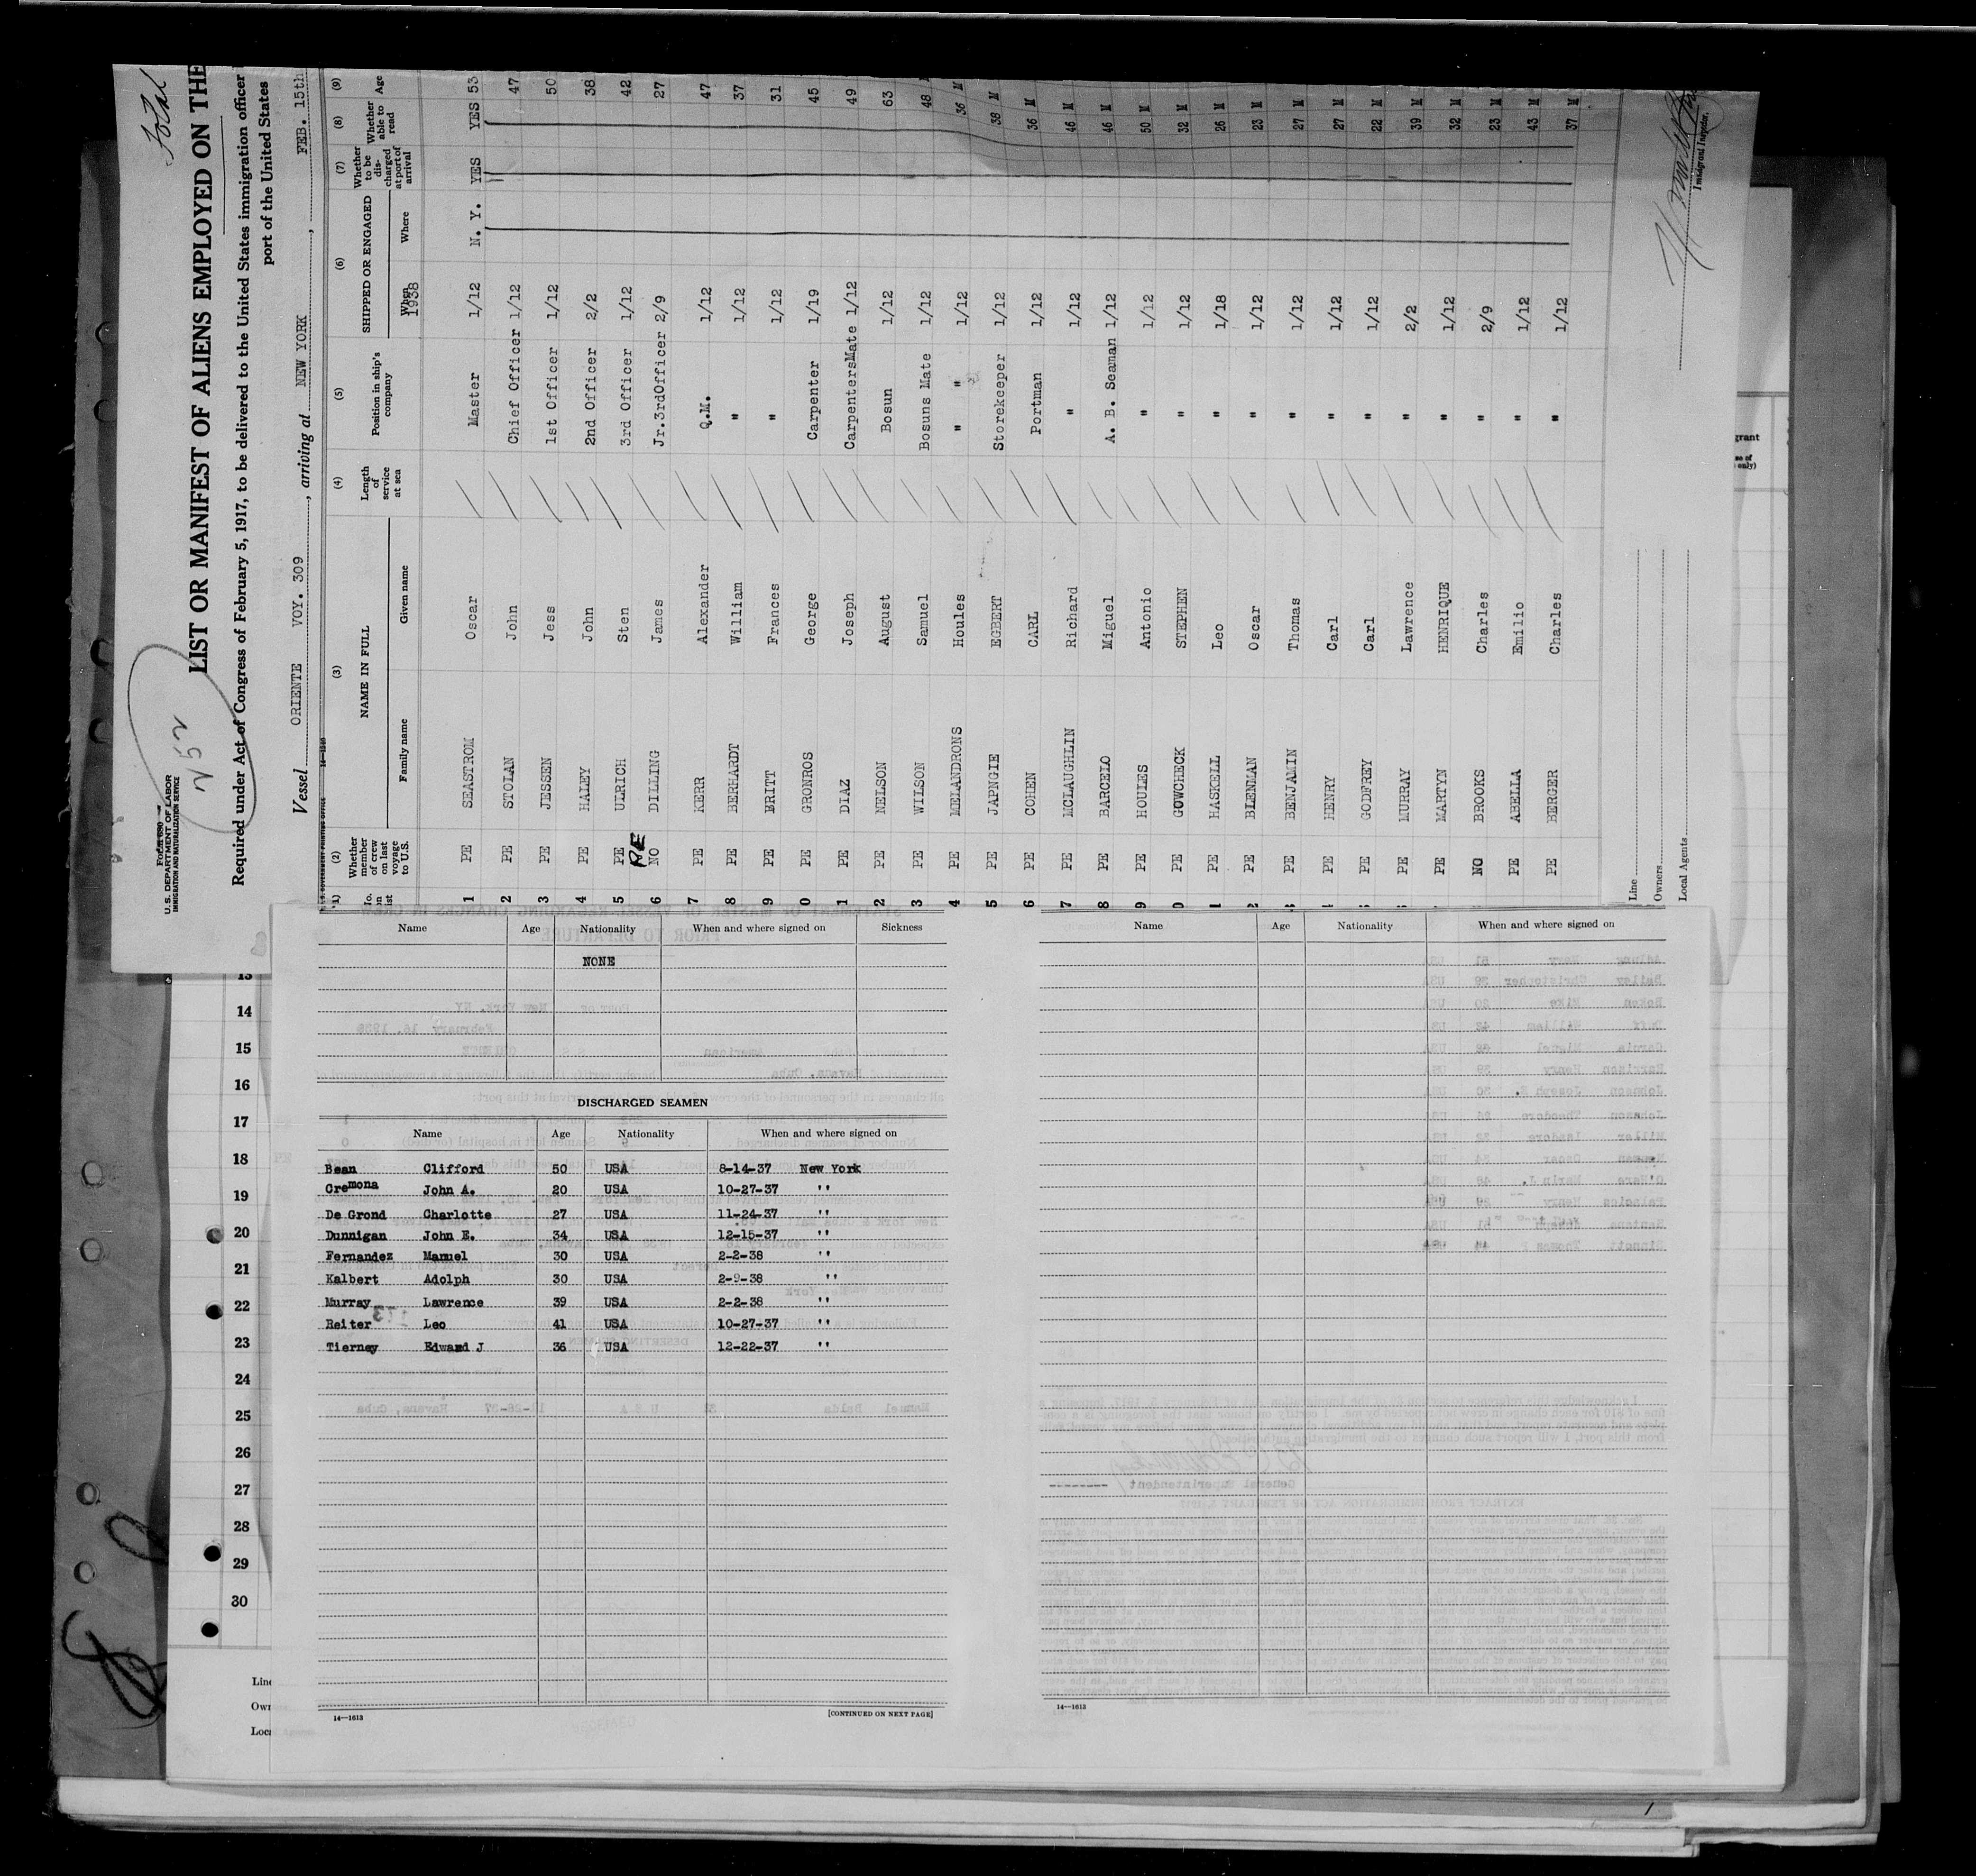 Total
252
Form 680
U. S. DEPARTMENT OF LABOR
IMMIGRATION AND NATURALIZATION SERVICE
LIST OR MANIFEST OF ALIENS EMPLOYED ON THE
Required under Act of Congress of February 5, 1917, to be delivered to the United States immigration officer
port of the United States
Vessel ORIENTE VOY. 309, arriving at NEW YORK, FEB. 15th
(1) (2) (3) (4) (5) (6) (7) (8) (9)
Whether member of crew on last voyage to U.S. NAME IN FULL Length of service at sea Position in ship's company SHIPPED OR ENGAGED Whether to be discharged at port of arrival Whether able to read Age
Family name Given name When Where
1938
1 PE SEASTROM Oscar Master 1/12 N. Y. YES YES 53
2 PE STOLAN John Chief Officer 1/12 47
3 PE JESSEN Jess 1st Officer 1/12 50
4 PE HALEY John 2nd Officer 2/2 38
5 PE ULRICH Sten 3rd Officer 1/12 42
6 PE NO DILLING James Jr.3rdOfficer 2/9 27
7 PE KERR Alexander Q.M. 1/12 47
8 PE BERHARDT William " 1/12 37
9 PE BRITT Frances " 1/12 31
0 PE GRONROS George Carpenter 1/19 45
1 PE DIAZ Joseph CarpentersMate 1/12 49
2 PE NELSON August Bosun 1/12 63
3 PE WILSON Samuel Bosuns Mate 1/12 48
4 PE MELANDRONS Houles " " 1/12 36 M
5 PE JAPNGIE EGBERT Storekeeper 1/12 38 M
6 PE COHEN CARL Portman 1/12 36 M
7 PE MCLAUGHLIN Richard " 1/12 46 M
8 PE BARCELO Miguel A. B. Seaman 1/12 46 M
9 PE HOULES Antonio " 1/12 50 M
0 PE GOWCHECK STEPHEN " 1/12 32 M
1 PE HASKELL Leo " 1/18 26 M
2 PE BLENMAN Oscar " 1/12 23 M
PE BENJAMIN Thomas " 1/12 27 M
PE HENRY Carl " 1/12 27 M
PE GODFREY Carl " 1/12 22 M
PE MURRAY Lawrence " 2/2 39 M
PE MARTYN HENRIQUE " 1/12 32 M
NO BROOKS Charles " 2/9 23 M
PE ABELLA Emilio " 1/12 43 M
PE BERGER Charles " 1/12 37 M
Line
Owners
Local Agents
Immigrant Inspector.
Name Age Nationality When and where signed on Sickness
NONE
DISCHARGED SEAMEN
Name Age Nationality When and where signed on
Bean Clifford 50 USA 8-14-37 New York
Cremona John A. 20 USA 10-27-37 ''
De Grond Charlotte 27 USA 11-24-37 ''
Dunnigan John E. 34 USA 12-15-37 ''
Fernandez Manuel 30 USA 2-2-38 ''
Kalbert Adolph 30 USA 2-9-38 ''
Murray Lawrence 39 USA 2-2-38 ''
Reiter Leo 41 USA 10-27-37 ''
Tierney Edward J 36 USA 12-22-37 ''
14—1613
[CONTINUED ON NEXT PAGE]
Name Age Nationality When and where signed on
14—1613
13
14
15
16
17
18
19
20
21
22
23
24
25
26
27
28
29
30
Line